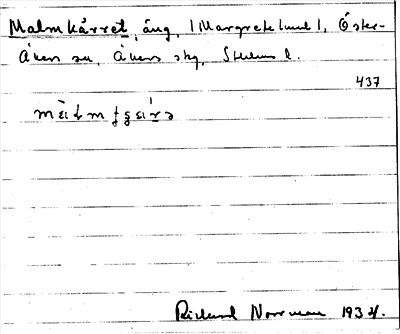 Malmkärret, äng, (Margretelund), Öster-
Åkers sn, Åkers skg, Sthlms l.
437
Rickard Norrman 1934.